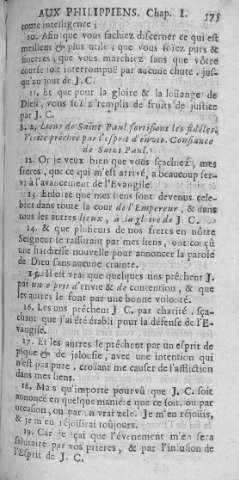 AUX PHILIPPIENS. Chap. I. 575
toute intelligence ;
10. Afin que vous sachiez discerner ce qui est
meilleur & plus utile ; que vous soïez purs &
sinceres ; que vous marchiez sans que vôtre
course soit interrompuë par aucune chute, jus-
qu'au jour de J. C.
11. Et que pour la gloire & la loüange de
Dieu, vous soïez remplis de fruits de justice
par J. C.
§. 2. Cœur de Saint Paul fortifiant les fidéles.
Verité prêchée par l'esprit d'envie. Confiance
de Saint Paul.
12. Or je veux bien que vous sçachiez, mes
freres, que ce qui m'est arrivé, a beaucoup ser-
vi à l'avancement de l'Evangile.
13. Ensorte que mes liens sont devenus cele-
bres dans toute la cour de l'Empereur, & dans
tous les autres lieux, à la gloire de J. C.
14. & que plusieurs de nos freres en nôtre
Seigneur se rassurant par mes liens, ont conçû
une hardiesse nouvelle pour annoncer la parole
de Dieu sans aucune crainte.
15. Il est vrai que quelques uns prêchent J.
par un esprit d'envie & de contention, & que
les autres le font par une bonne volonté.
16. Les uns prêchent J. C. par charité, sça-
chant que j'ai été établi pour la défense de l'E-
vangile.
17. Et les autres le prêchent par un esprit de
pique & de jalousie, avec une intention qui
n'est pas pure, croïant me causer de l'affliction
dans mes liens.
18. Mais qu'importe pourvû que J. C. soit
annoncé en quelque maniére que ce soit, ou par
occasion, ou par un vrai zele. Je m'en réjoüis,
& je m'en réjoüirai toûjours.
19. Car je sçai que l'évenement m'en sera
salutaire par vos prieres, & par l'infusion de
l'Esprit de J. C.